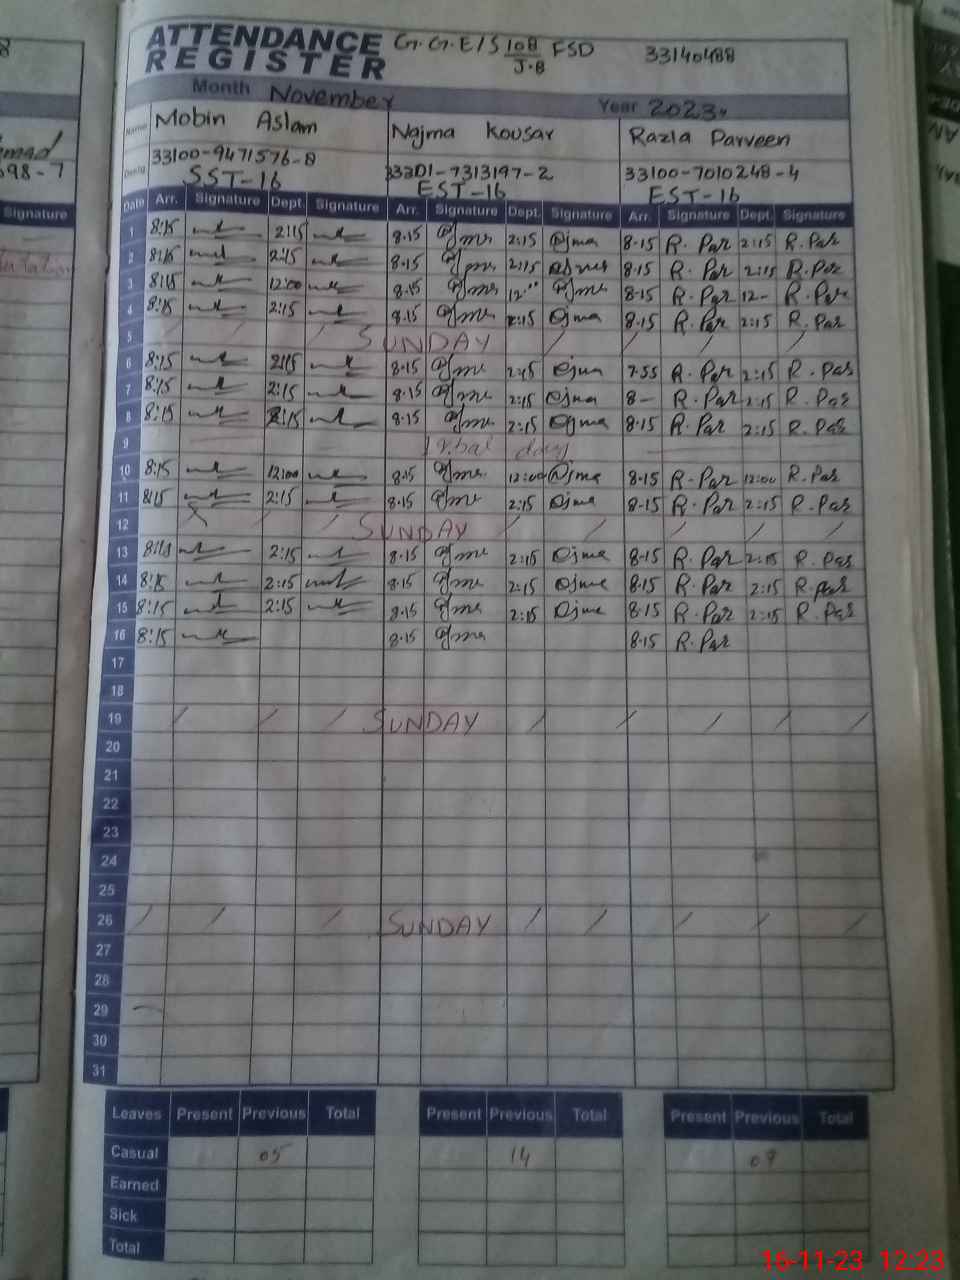 ATTENDANCE REGISTER G.G.E/S 108/J.B FSD 33140488
Month November Year 2023
Name Mobin Aslam Najma Kousar Razia Parveen
Desig 33100-9471576-8 33301-7313197-2 33100-7010248-4
SST-16 EST-16 EST-16
Date Arr. Signature Dept. Signature Arr. Signature Dept. Signature Arr. Signature Dept. Signature
1 8:15 2:15 8.15 2:15 8-15 R. Par 2:15 R. Par
2 8:15 2:15 8.15 2:15 8-15 R. Par 2:15 R. Par
3 8:15 12:00 8.15 12 8-15 R. Par 12- R. Par
4 8:15 2:15 8.15 2:15 8-15 R. Par 2:15 R. Par
5 SUNDAY
6 8:15 2:15 8.15 2:15 7-55 R. Par 2:15 R. Par
7 8:15 2:15 8.15 2:15 8- R. Par 2:15 R. Par
8 8:15 2:15 8.15 2:15 8-15 R. Par 2:15 R. Par
9 Iqbal day
10 8:15 12:00 8.15 12:00 8-15 R. Par 12:00 R. Par
11 8:15 2:15 8.15 2:15 8-15 R. Par 2:15 R. Par
12 SUNDAY
13 8:15 2:15 8.15 2:15 8-15 R. Par 2:15 R. Par
14 8:15 2:15 8.15 2:15 8-15 R. Par 2:15 R. Par
15 8:15 2:15 8.15 2:15 8-15 R. Par 2:15 R. Par
16 8:15 8.15 8-15 R. Par
17
18
19 SUNDAY
20
21
22
23
24
25
26 SUNDAY
27
28
29
30
31
Leaves Present Previous Total Present Previous Total Present Previous Total
Casual 05 14 07
Earned
Sick
Total
16-11-23 12:23